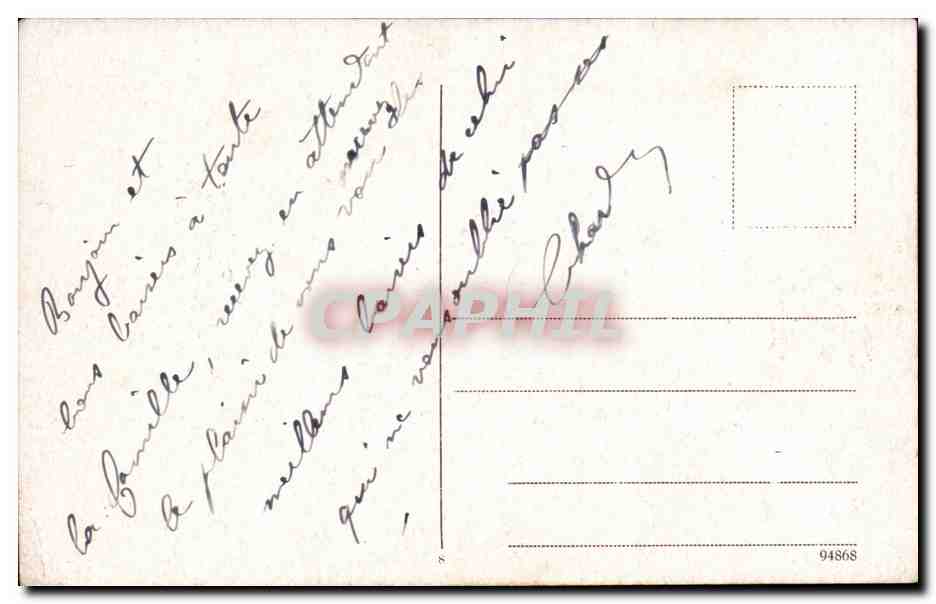 Bonjour et
bons baisers à toute
la famille, recevez en attendant
le plaisir de vous voir mes
meilleurs baisers de celui
qui ne vous oublie pas
CPAPHIL
8
94868